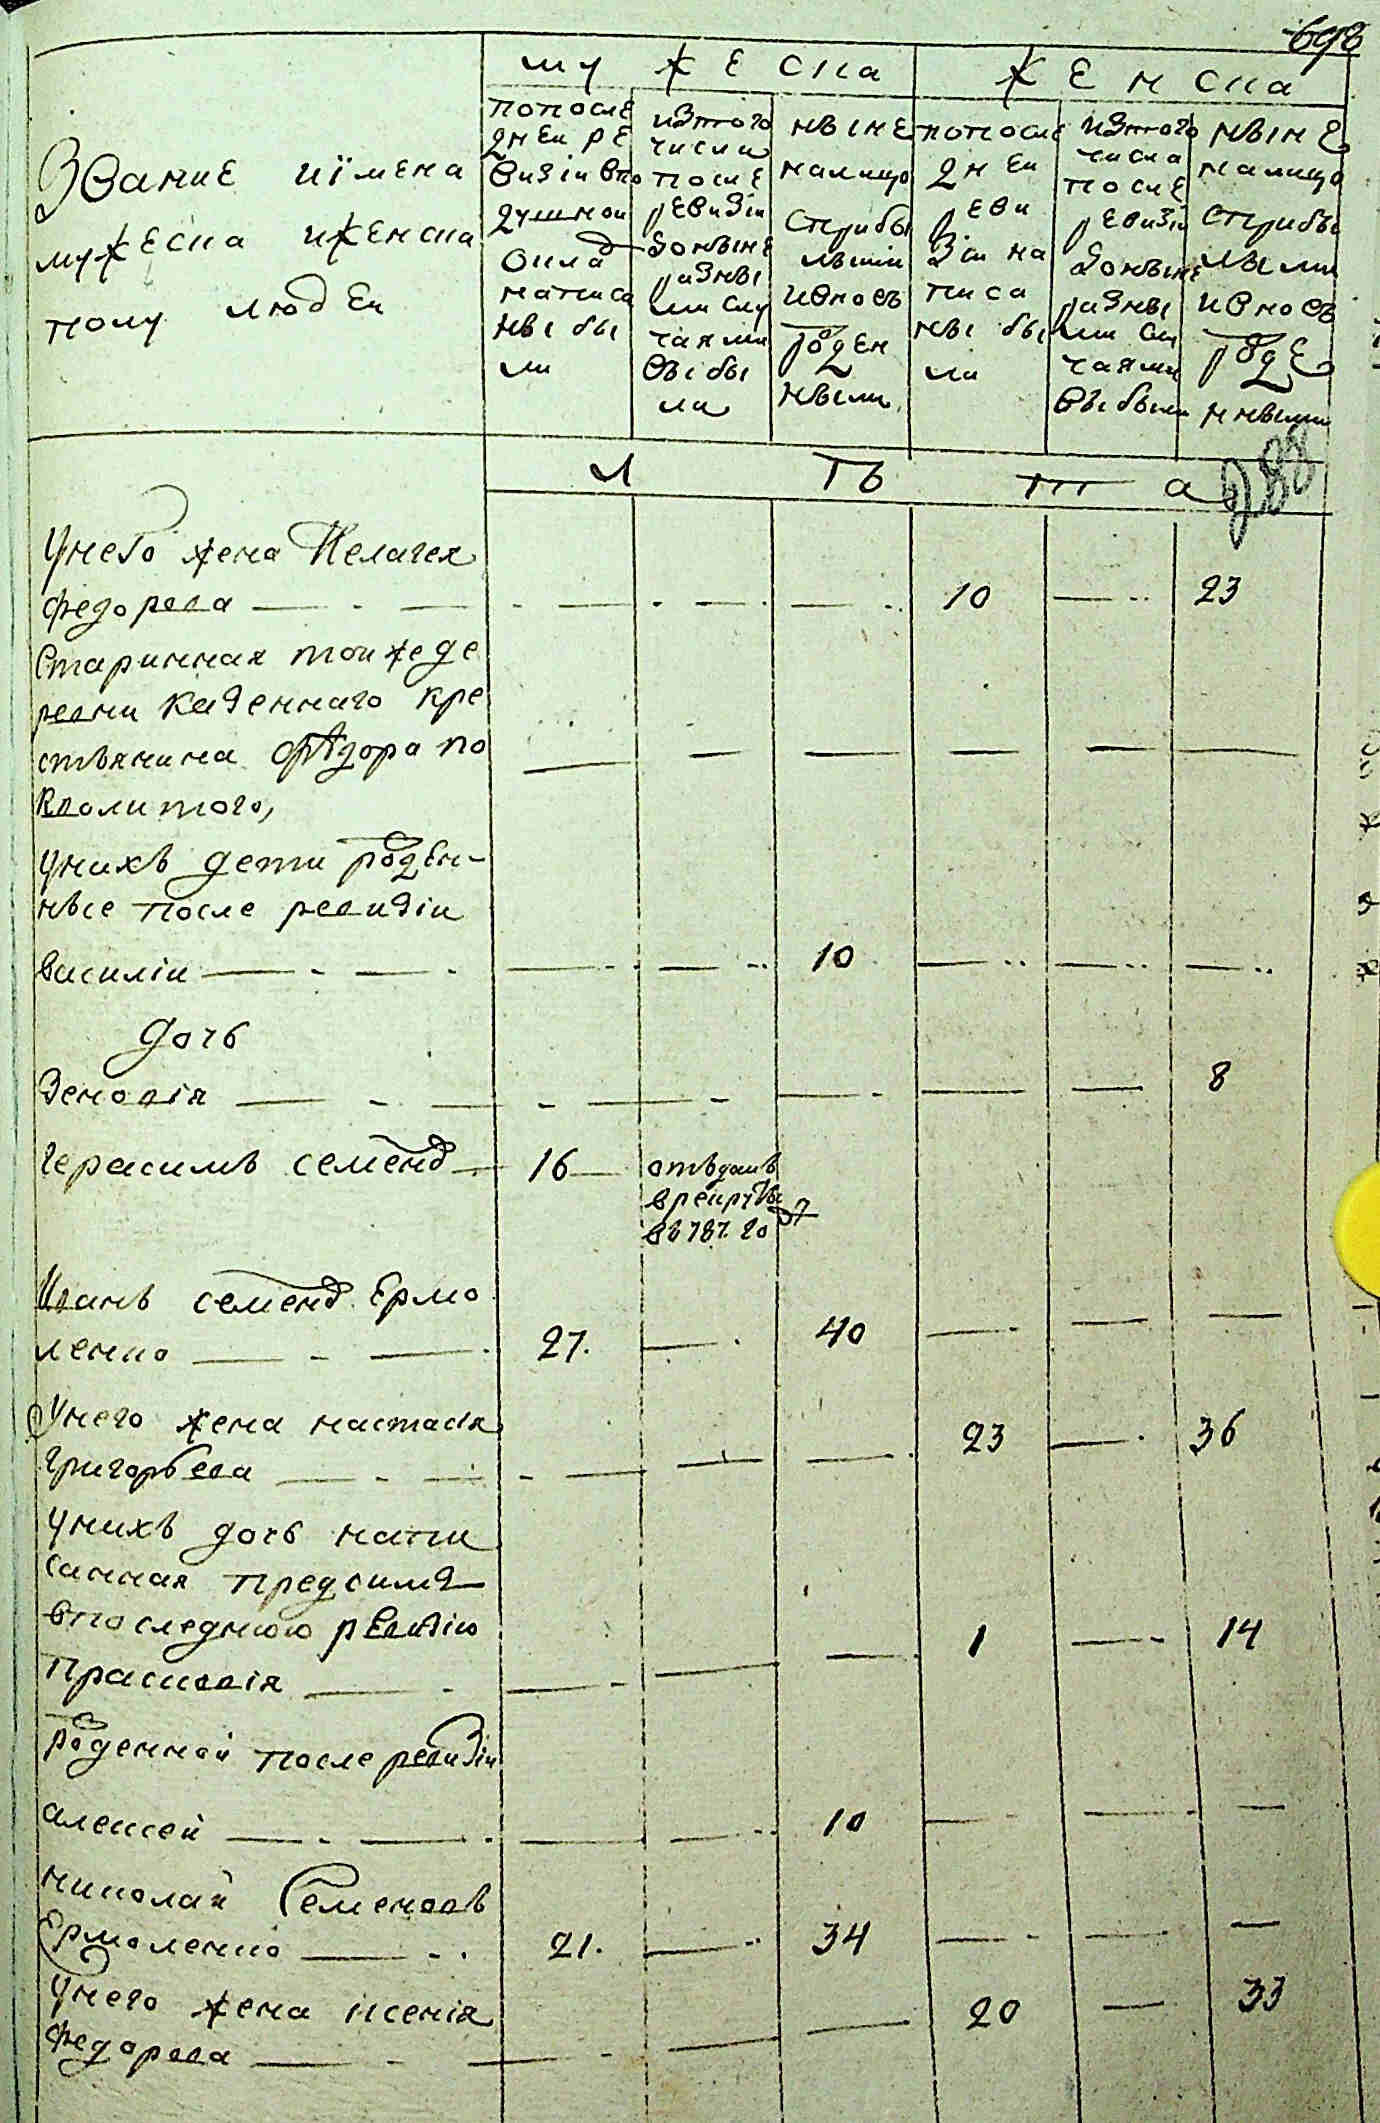 698
мужеска
женска
Звание иимена
мужеска иженска
полу людей
попосле
дней ре
визіи впо
душной
оклад
написа
ны бы
ли
изтого
числа
после
ревизіи
доныне
разны
ми слу
чаями
выбы
ли
ныне
налицо
сприбы
лыми
ивновь
рожден
ными
попосле
дней
реви
зіи на
писа
ны бы
ли
изтого
числа
после
ревизіи
доныне
разны
ми слу
чаями
выбыли
ныне
налицо
сприбы
лыми
ивновь
рожде
нными
лѣта
288
Унего жена Пелагея
федорова 10 23
Старинная тойжеде
ревни казеннаго кре
стьянина Фѣдора по
кволитого,
унихъ дети рожден-
ные после ревизіи
василіи 10
дочь
Зеновія 8
герасимъ семенов 16 отъданъ
врекруты
въ787. год
Иванъ семенов Ермо
ленко 27. 40
Унего жена настасія
григорьева 23 36
унихъ дочь напи
санная предсимъ
впоследнюю ревизію
Прасковія 1 14
рожденной после ревизіи
алексей 10
николай Семеновъ
Ермоленко 21. 34
унего жена ксенія
федорова 20 33